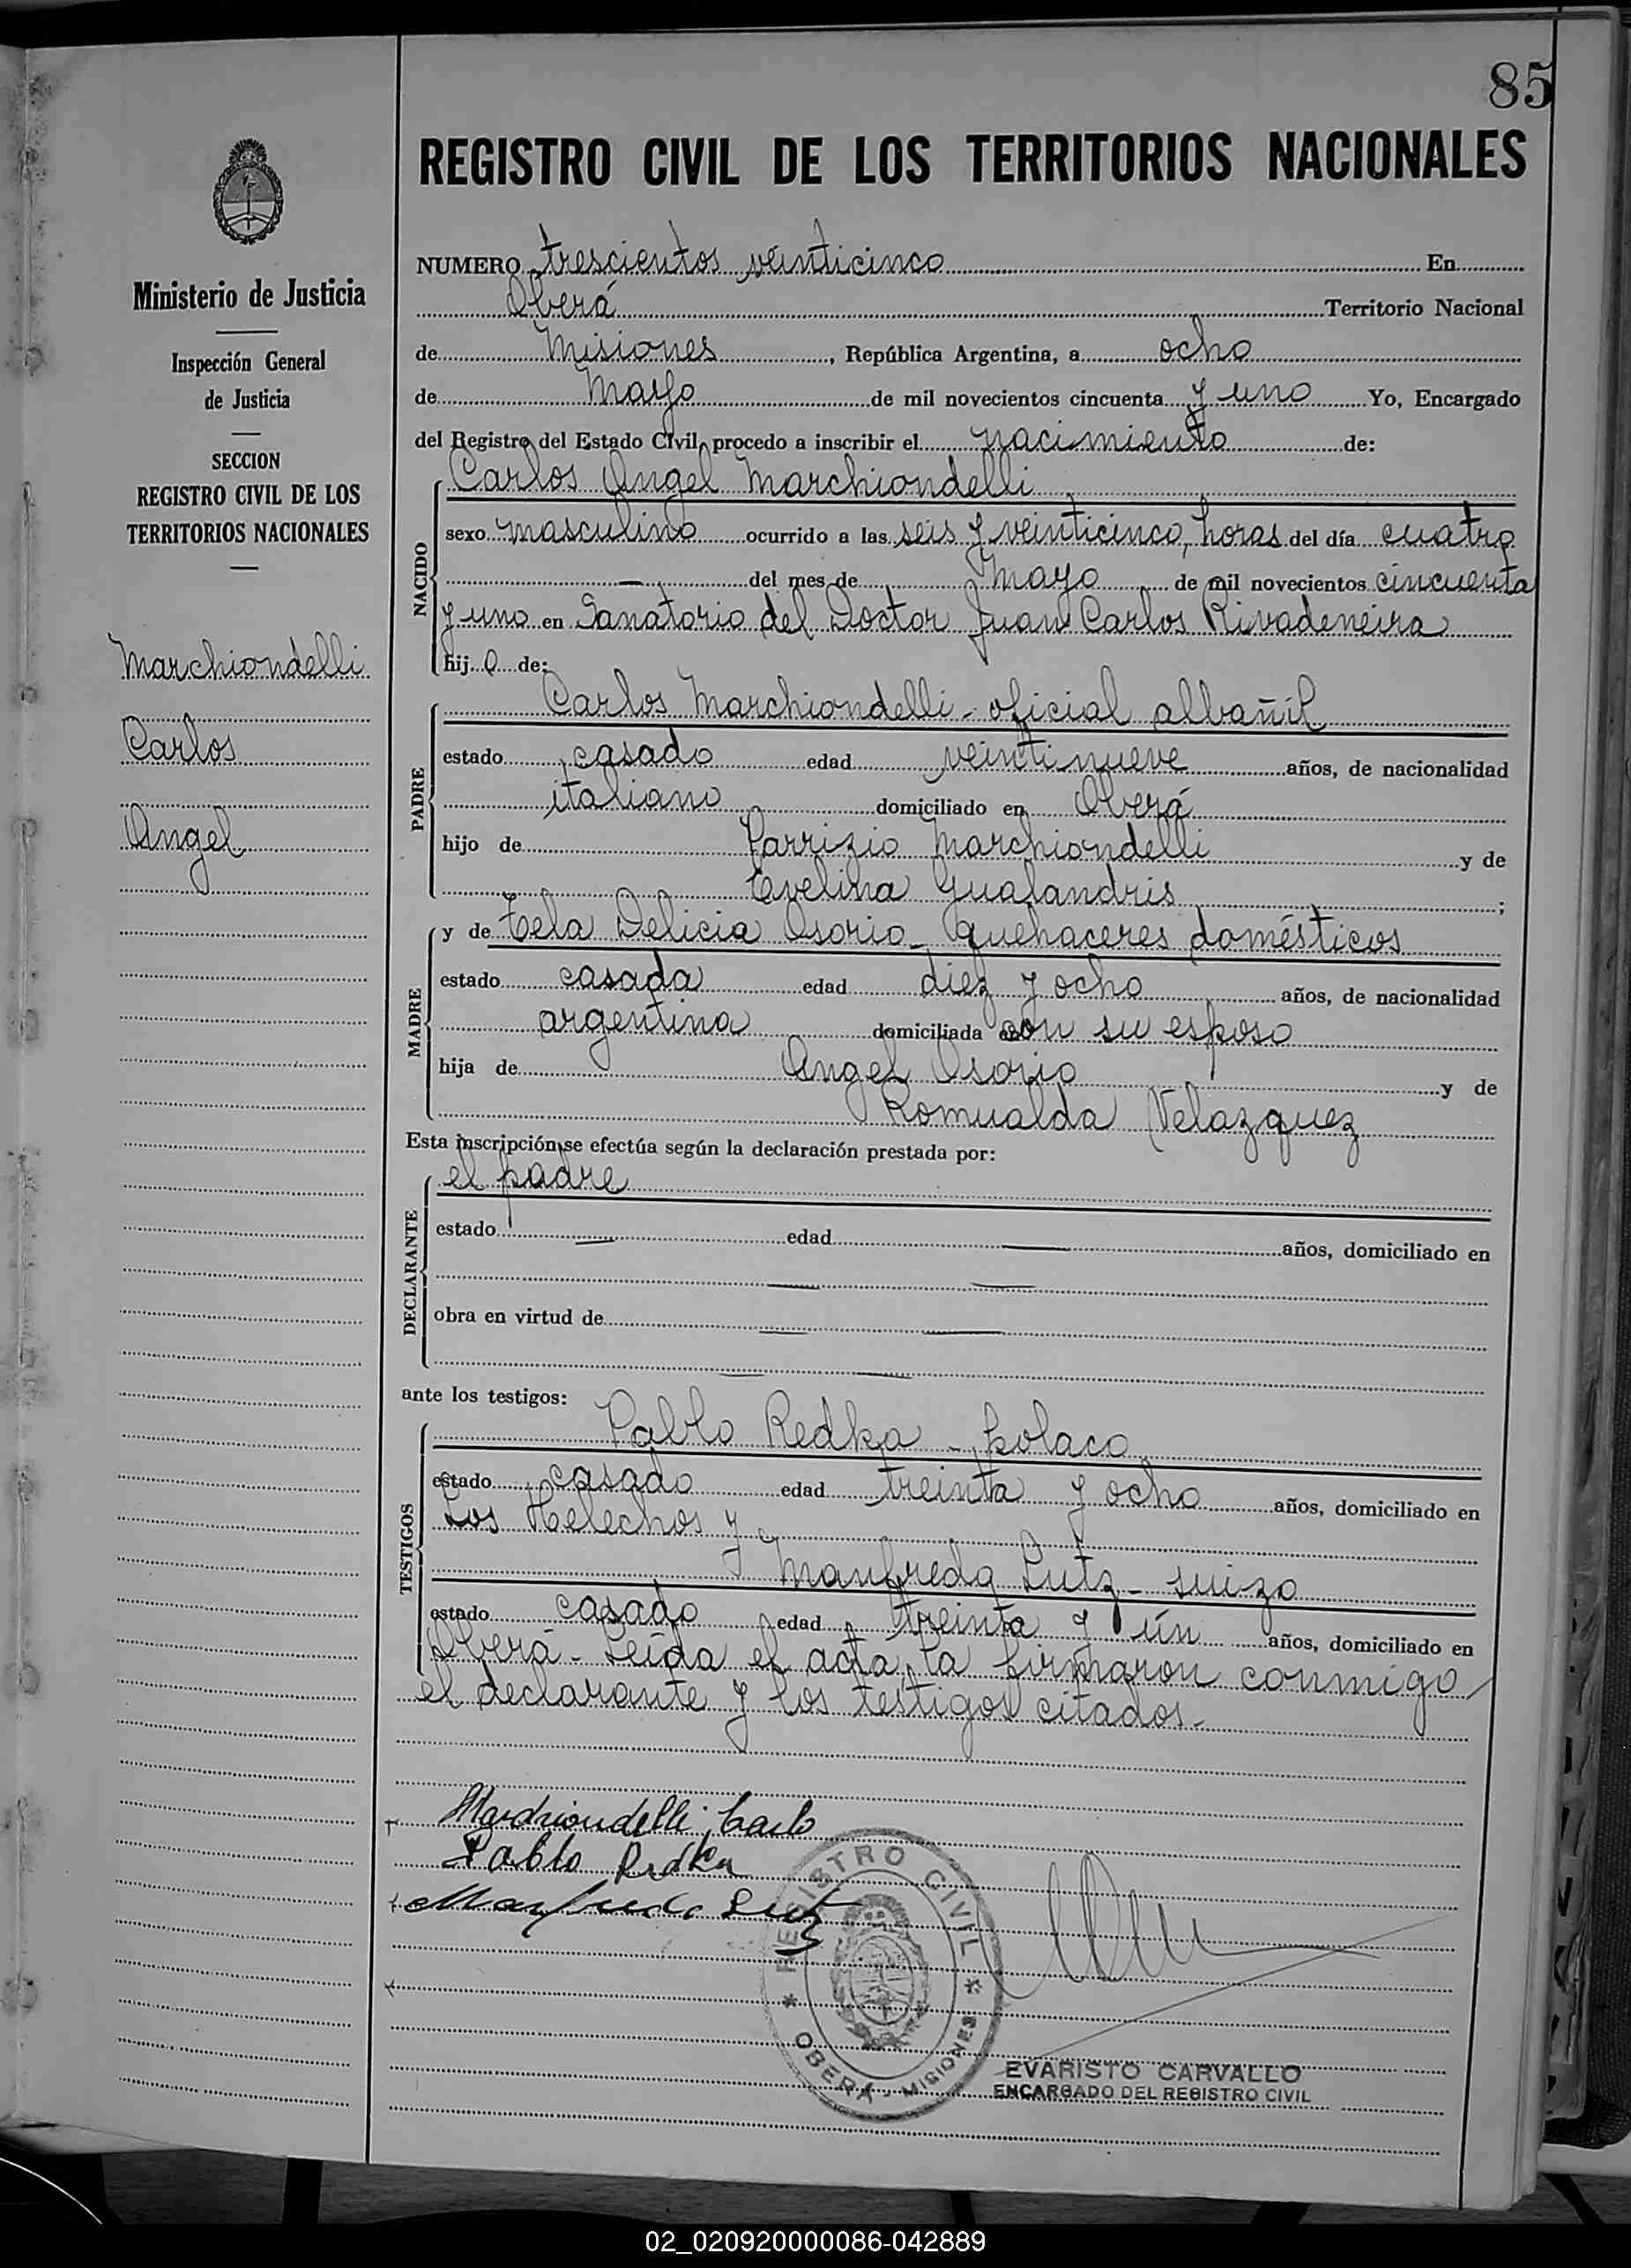 85
REGISTRO CIVIL DE LOS TERRITORIOS NACIONALES
Ministerio de Justicia
Inspección General
de Justicia
SECCION
REGISTRO CIVIL DE LOS
TERRITORIOS NACIONALES
Marchiondelli
Carlos
Angel
NUMERO trescientos veinticinco En
Oberá Territorio Nacional
de Misiones, República Argentina, a ocho
de Mayo de mil novecientos cincuenta y uno Yo, Encargado
del Registro del Estado Civil, procedo a inscribir el nacimiento de:
NACIDO
Carlos Angel Marchiondelli
sexo masculino ocurrido a las seis y veinticinco, horas del día cuatro
— del mes de Mayo de mil novecientos cincuenta
y uno en Sanatorio del Doctor Juan Carlos Rivadeneira
hij o de:
PADRE
Carlos Marchiondelli - oficial albañil
estado casado edad veintinueve años, de nacionalidad
italiano domiciliado en Oberá
hijo de Parrizio Marchiondelli y de
Evelina Gualandris ;
MADRE
y de Tela Delicia Osorio - quehaceres domésticos
estado casada edad diez y ocho años, de nacionalidad
argentina domiciliada con su esposo
hija de Angel Osorio y de
Romualda Velazquez
Esta inscripción se efectúa según la declaración prestada por:
DECLARANTE
el padre
estado — edad — años, domiciliado en
— —
obra en virtud de — —
— —
ante los testigos:
TESTIGOS
Pablo Redka - polaco
estado casado edad treinta y ocho años, domiciliado en
Los Helechos y
Manfredo Lutz - suizo
estado casado edad treinta y ún años, domiciliado en
Oberá - Leída el acta, la firmaron conmigo
el declarante y los testigos citados.-
Marchiondelli Carlo
Pablo Redka
Manfredo Lutz
REGISTRO CIVIL
* OBERA - MISIONES *
EVARISTO CARVALLO
ENCARGADO DEL REGISTRO CIVIL
02_020920000086-042889